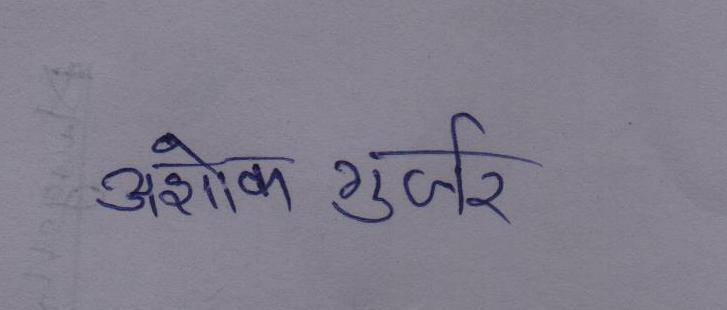 अशोक गुर्जर